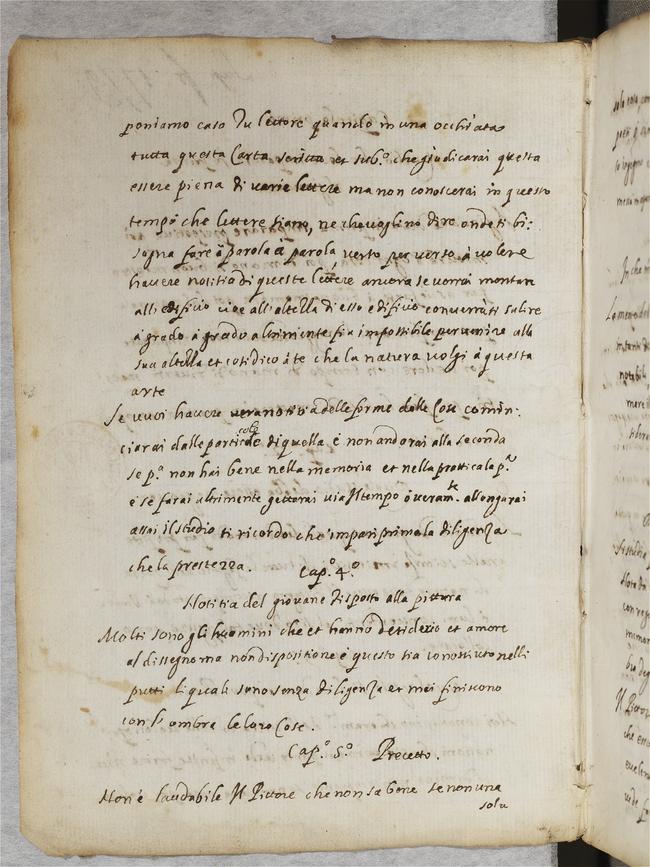 poniamo caso Tu lettore quando in una occhiata
tutta questa Carta scritta et sub.º che giudicarai questa
essere piena di varie lettere ma non conoscerai in questo
tempo che lettere siano, ne che voglino dire onde ti bi:
sogna fare à parola à parola, verso per verso à volere
havere notitia di queste lettere ancora se vorrai montare
all edificio cioe all'altezza di esso edificio converrati salire
à grado à grado altrimente fia impossibile pervenire alla
sua altezza et così dico à te che la natura volgi à questa
arte
Se vuoi havere vera notitia delle forme delle Cose comin:
ciarai dalle particole di quella è non andarai alla seconda
se p.ª non hai bene nella memoria et nella prattica la p.ª
è se farai altrimente gettarai via Il tempo ò veram.te allongarai
assai il studio ti ricordo che impari prima la diligenza
che la prestezza.
Cap.º 4.º
Notitia del giovane disposto alla pittura
Molti sono gli huomini che et hanno desiderio et amore
al dissegno ma non dispositione è questo sia conosciuto nelli
putti li quali sono senza diligenza et mai finiscono
con l' ombra le loro Cose.
Cap.º 5.º Precetto.
Non è laudabile Il Pittore che non sa bene se non una
sola